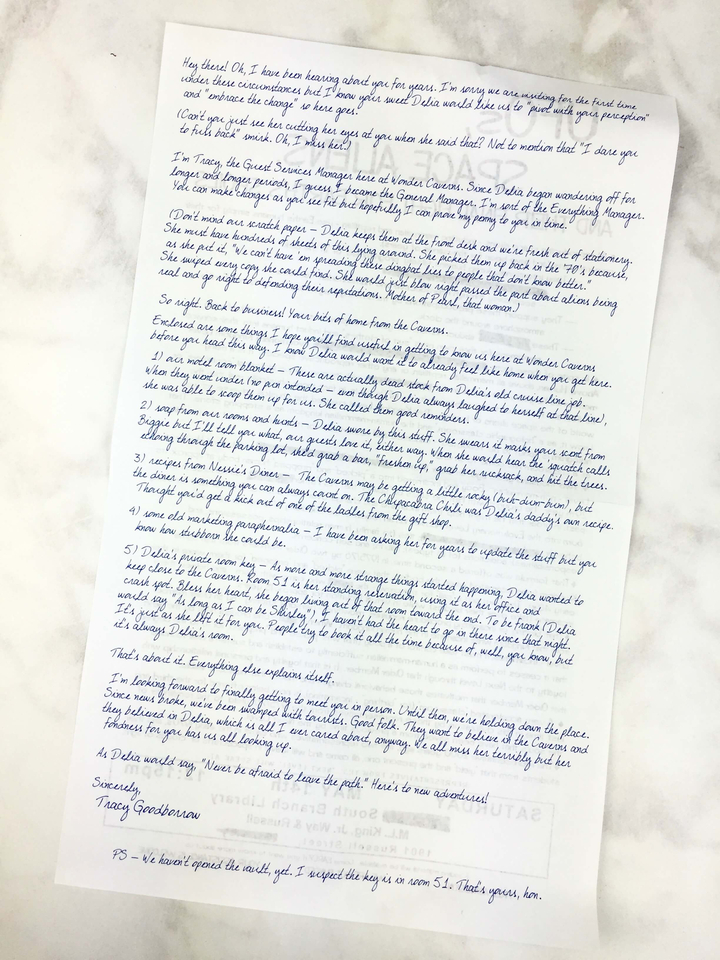 Hey there! Oh, I have been hearing about you for years. I'm sorry we are visiting for the first time
under these circumstances but I know your sweet Delia would like us to "pivot with your perception"
and "embrace the change" so here goes.
(Can't you just see her cutting her eyes at you when she said that? Not to mention that "I dare you
to fuss back" smirk. Oh, I miss her.)
I'm Tracy, the Guest Services Manager here at Wonder Caverns. Since Delia began wandering off for
longer and longer periods, I guess I became the General Manager. I'm sort of the Everything Manager.
You can make changes as you see fit but hopefully I can prove my penny to you in time.
(Don't mind our scratch paper – Delia keeps them at the front desk and we're fresh out of stationery.
She must have hundreds of sheets of this lying around. She picked them up back in the '70's because,
as she put it, "We can't have 'em spreading these dingbat lies to people that don't know better."
She swiped every copy she could find. She would just blow right passed the part about aliens being
real and go right to defending their reputations. Mother of Pearl, that woman.)
So right. Back to business! Your bits of home from the Caverns.
Enclosed are some things I hope you'll find useful in getting to know us here at Wonder Caverns
before you head this way. I know Delia would want it to already feel like home when you get here.
1) our motel room blanket – These are actually dead stock from Delia's old cruise line job.
When they went under (no pun intended – even though Delia always laughed to herself at that line),
she was able to scoop them up for us. She called them good reminders.
2) soap from our rooms and hunts – Delia swore by this stuff. She swears it masks your scent from
Biggie but I'll tell you what, our guests love it, either way. When she would hear the squatch calls
echoing through the parking lot, she'd grab a bar, "freshen up," grab her rucksack, and hit the trees.
3) recipes from Nessie's Diner – The Caverns may be getting a little rocky (buh-dum-bum), but
the diner is something you can always count on. The Chupacabra Chili was Delia's daddy's own recipe.
Thought you'd get a kick out of one of the ladles from the gift shop.
4) some old marketing paraphernalia – I have been asking her for years to update the stuff but you
know how stubborn she could be.
5) Delia's private room key – As more and more strange things started happening, Delia wanted to
keep close to the Caverns. Room 51 is her standing reservation, using it as her office and
crash spot. Bless her heart, she began living out of that room toward the end. To be frank (Delia
would say "As long as I can be Shirley"), I haven't had the heart to go in there since that night.
It's just as she left it for you. People try to book it all the time because of, well, you know, but
it's always Delia's room.
That's about it. Everything else explains itself.
I'm looking forward to finally getting to meet you in person. Until then, we're holding down the place.
Since news broke, we've been swamped with tourists. Good folk. They want to believe in the Caverns and
they believed in Delia, which is all I ever cared about, anyway. We all miss her terribly but her
fondness for you has us all looking up.
As Delia would say, "Never be afraid to leave the path." Here's to new adventures!
Sincerely,
Tracy Goodborrow
PS – We haven't opened the vault, yet. I suspect the key is in room 51. That's yours, hon.